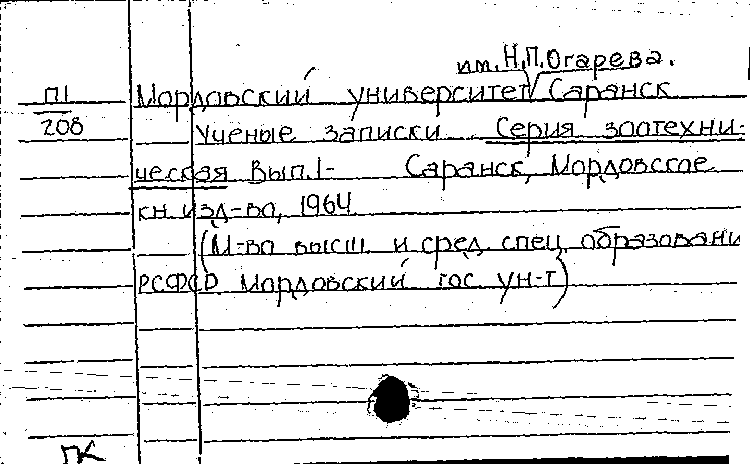 им. Н.П.Огарева.
П1 Мордовский университет Саранск
208 Ученые записки Серия зоотехни-
ческая Вып.1- Саранск, Мордовское
кн изд-во, 1964
(М-во высш. и сред. спец. образовани
РСФСР Мордовский гос. ун-т)
ПК